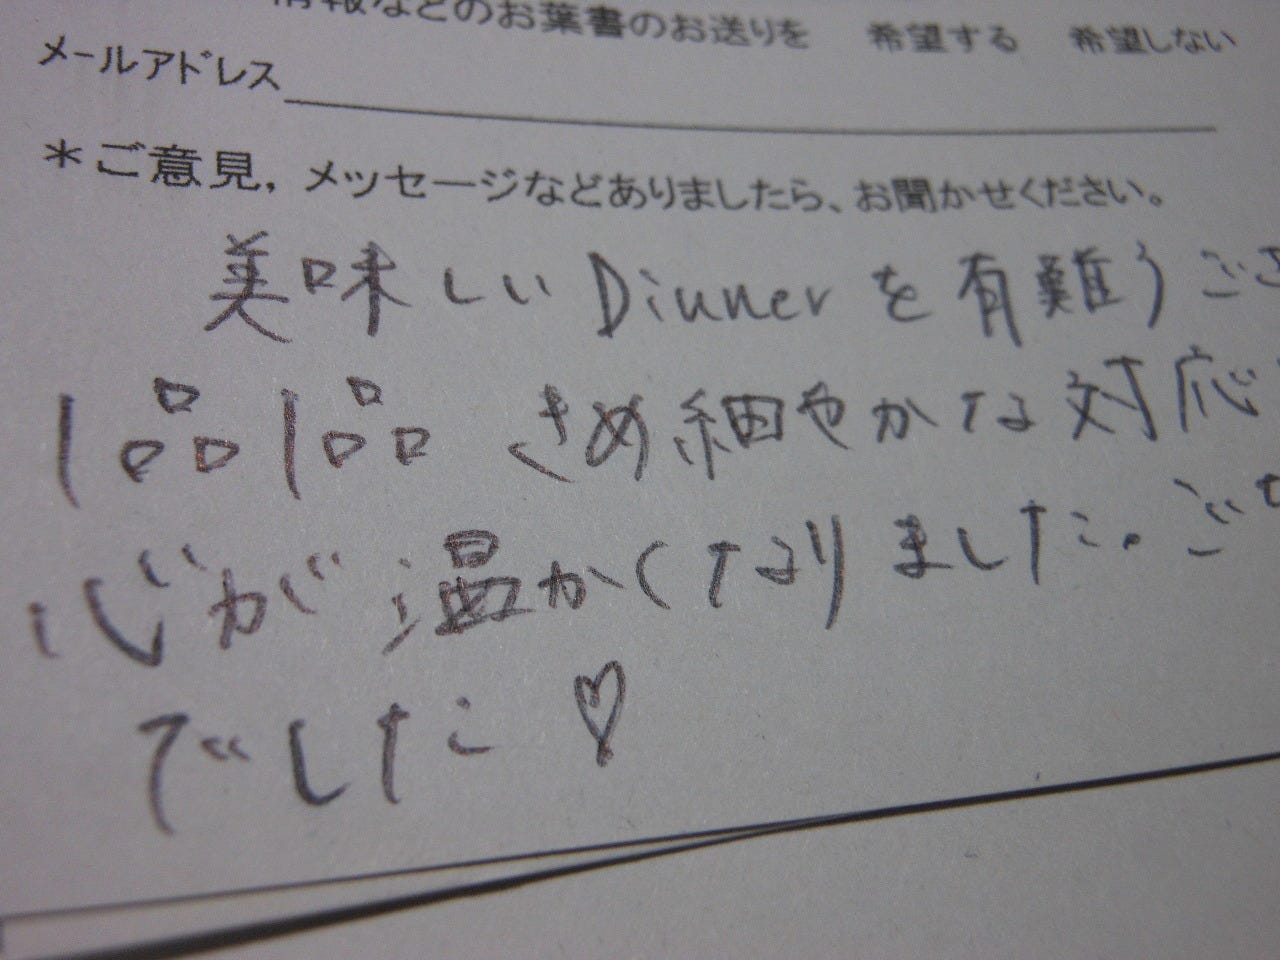 情報などのお葉書のお送りを 希望する 希望しない
メールアドレス
＊ご意見，メッセージなどありましたら、お聞かせください。
美味しいDinnerを有難うござ
1品1品きめ細やかな対応
心が温かくなりました。ご
でした♡